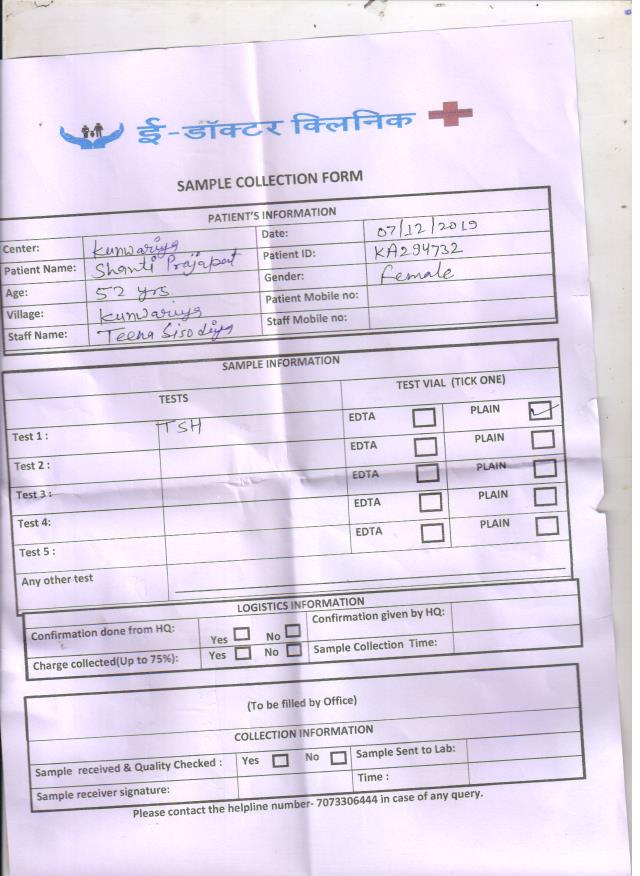 ई-डॉक्टर क्लिनिक
SAMPLE COLLECTION FORM
PATIENT'S INFORMATION
Center: Kunwariya Date: 07/12/2019
Patient Name: Shanti Prajapat Patient ID: KA294732
Age: 52 yrs. Gender: Female
Village: Kunwariya Patient Mobile no:
Staff Name: Teena Sisodiya Staff Mobile no:
SAMPLE INFORMATION
TESTS TEST VIAL (TICK ONE)
Test 1 : TSH EDTA PLAIN ✓
Test 2 : EDTA PLAIN
Test 3 : EDTA PLAIN
Test 4: EDTA PLAIN
Test 5 : EDTA PLAIN
Any other test
LOGISTICS INFORMATION
Confirmation done from HQ: Yes No Confirmation given by HQ:
Charge collected(Up to 75%): Yes No Sample Collection Time:
(To be filled by Office)
COLLECTION INFORMATION
Sample received & Quality Checked : Yes No Sample Sent to Lab:
Sample receiver signature: Time :
Please contact the helpline number- 7073306444 in case of any query.